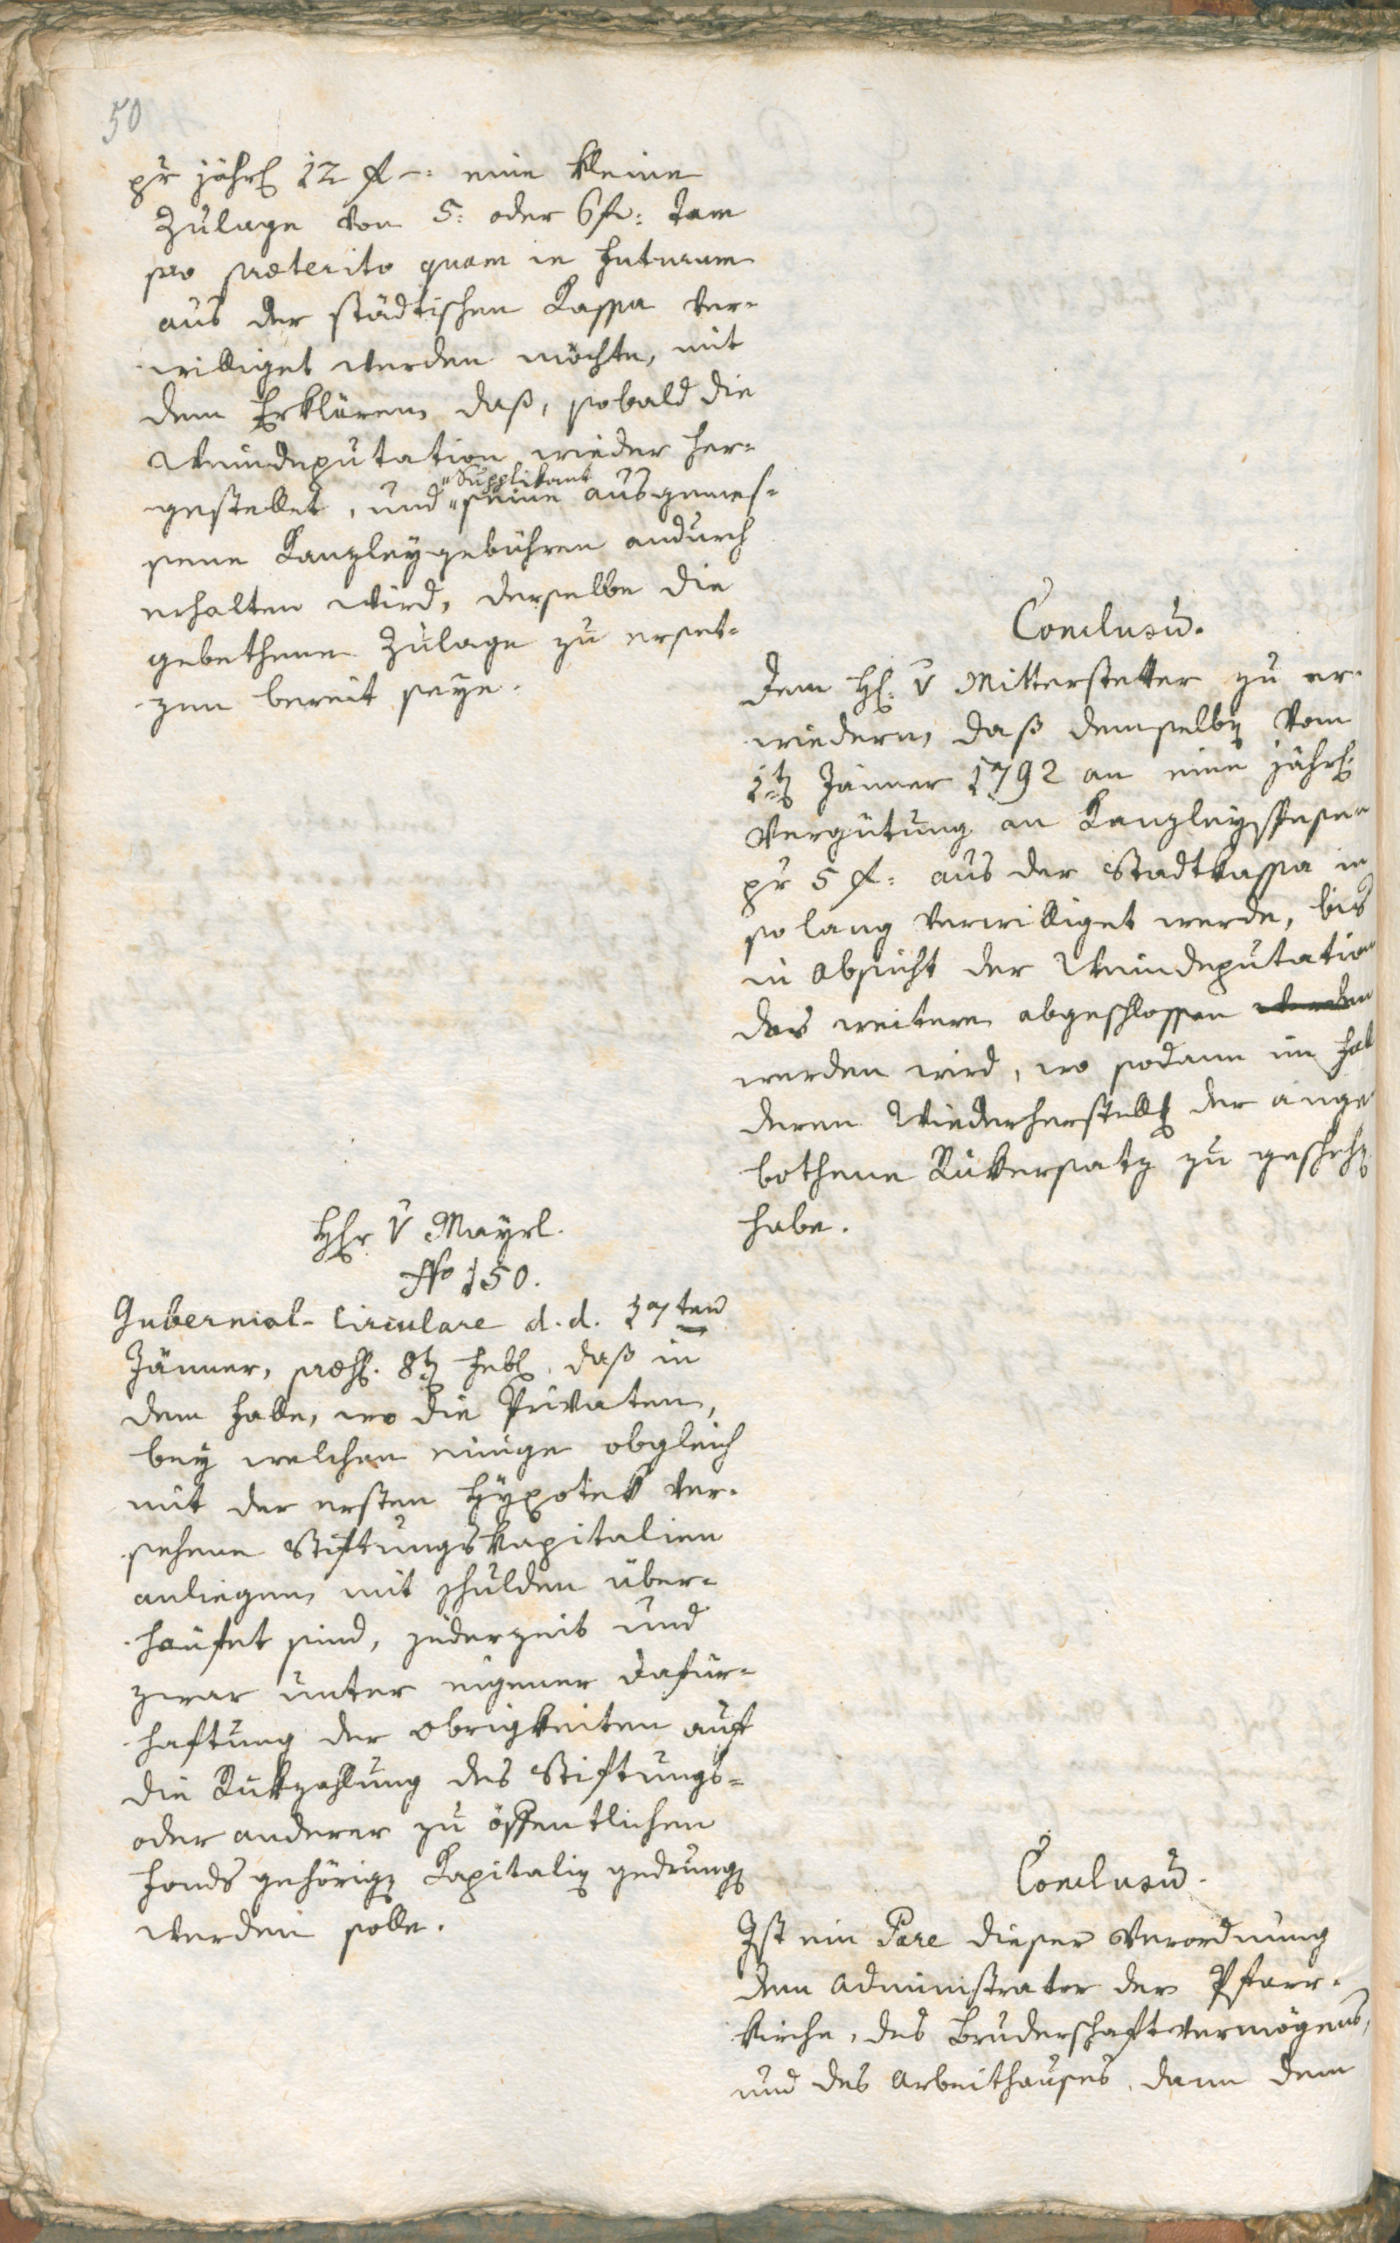 50
pr jährl 12 f –: eine kleine
Zulage von 5: oder 6 f: tam
pro præterito quam in futurum
aus der städtischen Kassa ver-
williget werden möchte, mit
dem Erklären, daß, sobald die
Weindeputation wieder her-
gestellet, und "Supplikant" seine ausgemes-
sene Kanzleygebühren andurch
erhalten wird, derselbe die
gebethene Zulage zu erset-
zen bereit seye.
Conclusū.
Dem H: v Mitterstetter zu er-
wiedern, daß demselbē vom
1tē Jänner 1792 an eine jährl:
Vergütung an Kanzleyspesen
pr 5 f: aus der Stadtkassa in
so lang verwilliget werde, bis
in Absicht der Weindeputation
das weitere abgeschlossen werden
werden wird, wo sodann im Fall
deren Wiederherstellg der ange
bothene Rükersatz zu geschehē
habe.
Hhr v Mayrl.
No 150.
Gubernial-Circulare d. d. 27ten
Jänner, præs. 8tē Febr. daß in
dem Falle, wo die Privaten,
bey welchen einige obgleich
mit der ersten Hÿpotek ver-
sehene Stiftungskapitalien
anliegen, mit Schulden über-
häufet sind, jederzeit und
zwar unter eigener Dafür-
haftung der Obrigkeiten auf
die Rükzahlung des Stiftungs-
oder anderer zu öffentlichen
Fonds gehörigē Kapitaliē gedrungē
werden solle.
Conclusū.
Ist ein Pare dieser Verordnung
dem Administrator der Pfarr-
kirche, des Bruderschaftvermögens,
und des Arbeithauses, dann dem